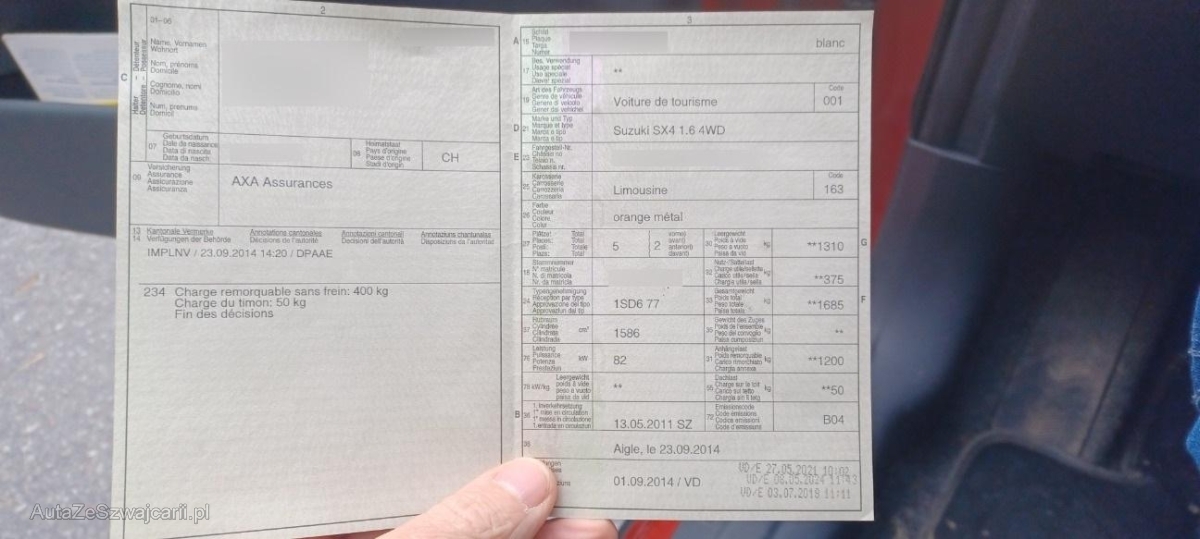 2
01-06
C
Name, Vornamen
Wohnort
Nom, prénoms
Domicile
Cognome, nomi
Domicilio
Num, prenums
Domicil
07
Geburtsdatum
Date de naissance
Data di nascita
Data da nasch.
08
Heimatstaat
Pays d'origine
Paese d'origine
Stadi d'origin
CH
09
Versicherung
Assurance
Assicurazione
Assicuranza
AXA Assurances
13
14
Kantonale Vermerke
Verfügungen der Behörde
Annotations cantonales
Décisions de l'autorité
Annotazioni cantonali
Decisioni dell'autorità
Annotaziuns chantunalas
Disposiziuns da l'autoritad
IMPLNV / 23.09.2014 14:20 / DPAAE
234 Charge remorquable sans frein: 400 kg
Charge du timon: 50 kg
Fin des décisions
3
A
15
Schild
Plaque
Targa
Numer
blanc
17
Bes. Verwendung
Usage spécial
Uso speciale
Diever spezial
**
19
Art des Fahrzeugs
Genre de véhicule
Genere di veicolo
Gener dal vehichel
Voiture de tourisme
Code
001
D
21
Marke und Typ
Marque et type
Marca e tipo
Marca e tip
Suzuki SX4 1.6 4WD
E
23
Fahrgestell-Nr.
Châssis no
Telaio n.
Schassis nr.
25
Karosserie
Carrosserie
Carrozzeria
Carossaria
Limousine
Code
163
26
Farbe
Couleur
Colore
Color
orange métal
27
Plätze: Total
Places: Total
Posti: Totale
Plazs: Total
5
2
30
Leergewicht
Poids à vide
Peso a vuoto
Paisa da vid
kg
**1310
G
18
Stammnummer
N° matricule
N. di matricola
Nr. da matricla
32
kg
**375
24
Typengenehmigung
Réception par type
Approvazione del tipo
Approvaziun dal tip
1SD6 77
33
Gesamtgewicht
Poids total
Peso totale
Paisa totala
kg
**1685
F
37
Hubraum
Cylindrée
Cilindrata
Cilindrada
cm³
1586
35
Gewicht des Zuges
Poids de l'ensemble
Peso del convoglio
Paisa cumposiziun
kg
**
76
Leistung
Puissance
Potenza
Prestaziun
kW
82
31
Anhängelast
Poids remorquable
Carico rimorchiato
Chargia annexa
kg
**1200
78 kW/kg
Leergewicht
poids à vide
peso a vuoto
paisa da vid
**
55
Dachlast
Charge sur le toit
Carico sul tetto
Chargia sin il tetg
kg
**50
B
36
1. Inverkehrsetzung
1re mise en circulation
1a messa in circolazione
1. entrada en circulaziun
13.05.2011 SZ
72
Emissionscode
Code émissions
Codice emissioni
Code d'emissiuns
B04
Aigle, le 23.09.2014
01.09.2014 / VD
VD/E 27.05.2021 10:02
VD/E 08.05.2024 11:43
VD/E 03.07.2018 11:11
AutaZeSzwajcarii.pl